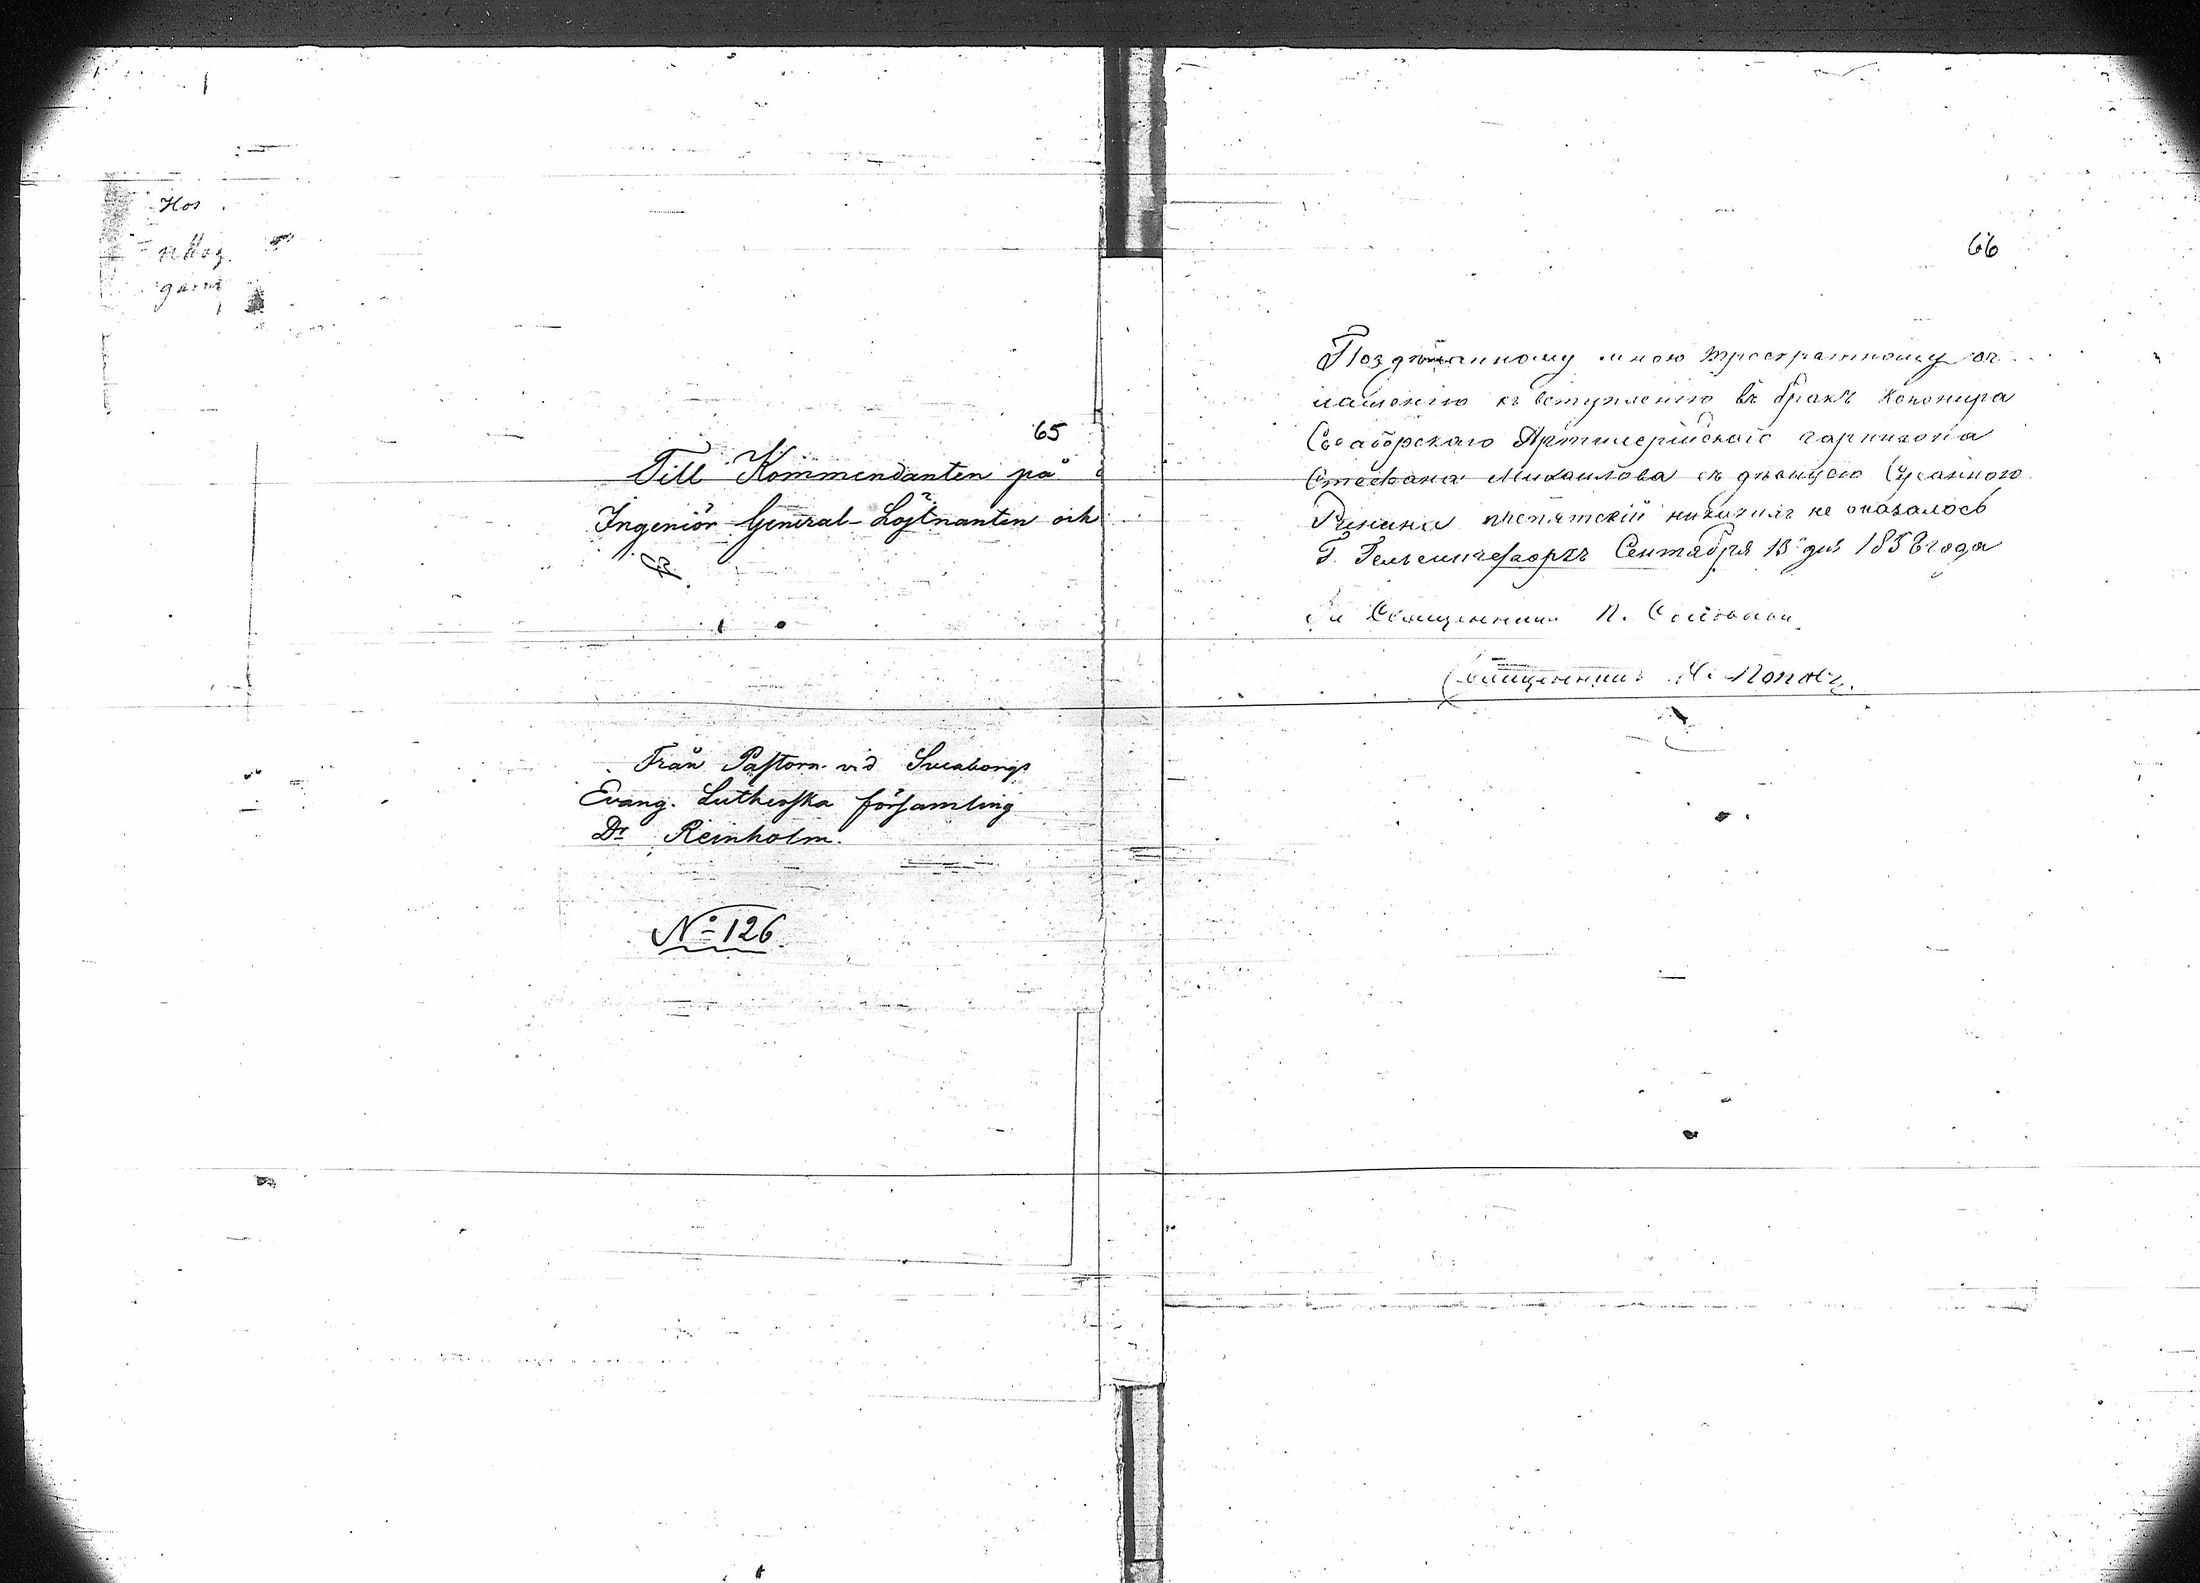 Hos
65
Till Kommendanten på
Ingeniör General-Löjtnanten och
R.
Från Pastorn vid Sveaborgs
Evang. Lutherska församling
Dr Reinholm.
No 126.
66
По здѣланному мною троекратному ог
лашению къ вступлению въ бракъ канонира
Свеаборскаго Артилерійскаго гарнизона
Стефана Михаилова съ дѣвицею Сусанною
Ринина препятствій никакихъ не оказалось
Г. Гельсингсфорсъ Сентября 13 дня 1858 года
Священникъ П.
Священникъ Поповъ.